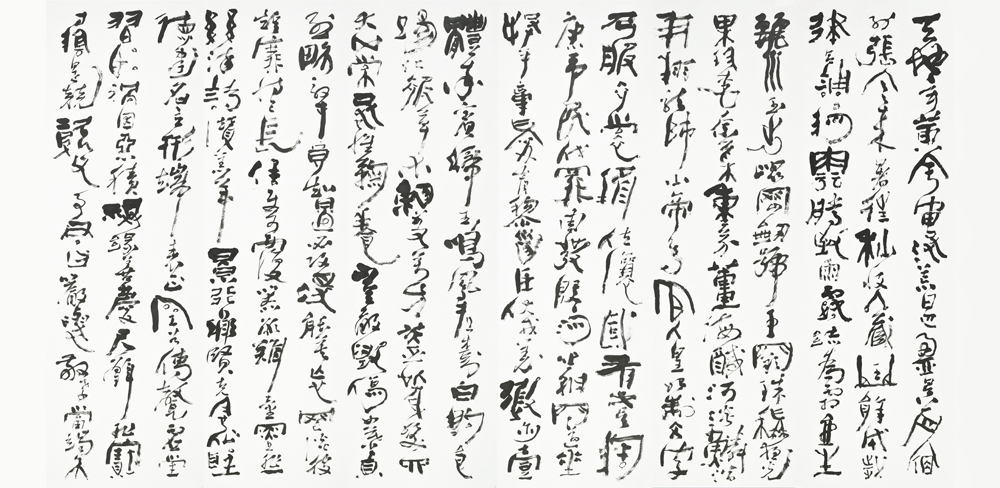 天地玄黃宇宙洪荒日月盈昃辰宿
列張寒來暑往秋收冬藏閏餘成歲
律呂調陽雲騰致雨露結為霜金生
麗水玉出崑岡劍號巨闕珠稱夜光
果珍李柰菜重芥薑海鹹河淡鱗潛
羽翔龍師火帝鳥官人皇始制文字
乃服衣裳推位讓國有虞陶
唐弔民伐罪周發殷湯坐朝問道垂
拱平章愛育黎首臣伏戎羌遐邇壹
體率賓歸王鳴鳳在樹白駒食
場化被草木賴及萬方蓋此身髮四
大五常恭惟鞠養豈敢毀傷女慕貞
知過必改得能莫忘罔談彼
短靡恃己長信使可覆器欲難量墨悲
絲染詩讚羔羊景行維賢克念作聖
德建名立形端表正空谷傳聲虛堂
習聽禍因惡積福緣善慶尺璧非寶
寸陰是競資父事君曰嚴與敬孝當竭力